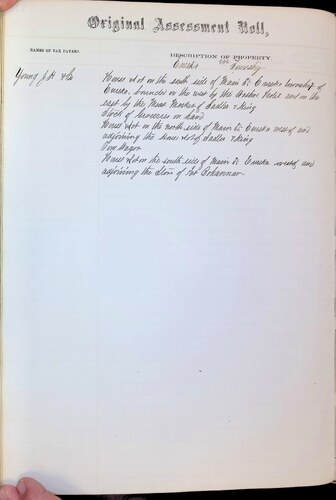 Original Assessment Roll,
NAMES OF TAX PAYERS.
DESCRIPTION OF PROPERTY
Eureka Township
Young J. H. & Co
House & lot on the south side of Main St Eureka township of
Eureka, bounded on the west by the Hotel and on the
east by the Meat Market of Sadler & King
Stock of Groceries on hand
House & lot on the north side of Main St Eureka west of and
adjoining the house & lot of Sadler & King
One Wagon
House & lot on the south side of Main St Eureka west of and
adjoining the store of Bohannan